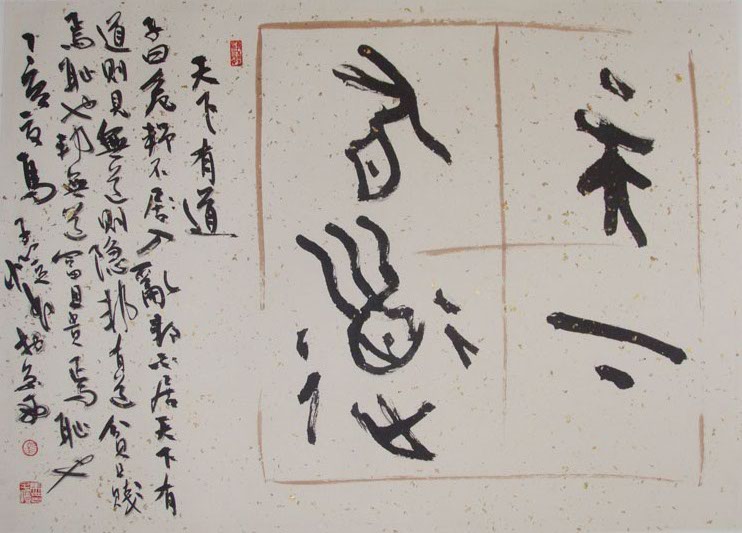 天下
有道
天下有道
子曰危邦不居入亂邦不居天下有
道則見無道則隐邦有道貧且賤
焉恥也邦無道富且貴焉恥也
丁亥